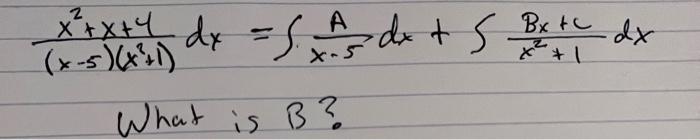 x²+x+4 / (x-5)(x²+1) dx = ∫. A / x-5 dx + ∫ Bx+c / x²+1 dx
What is B?